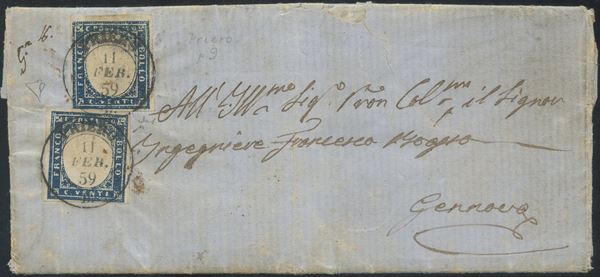 Priero
P 9
C. POSTALE
FRANCO
BOLLO
C. VENTI
11
FEB.
59
FRANCO
BOLLO
C. VENTI
11
FEB.
59
All' Ill.mo Sig.r Pron Col.mo il Signor
Ingegniere Francesco
Gennova